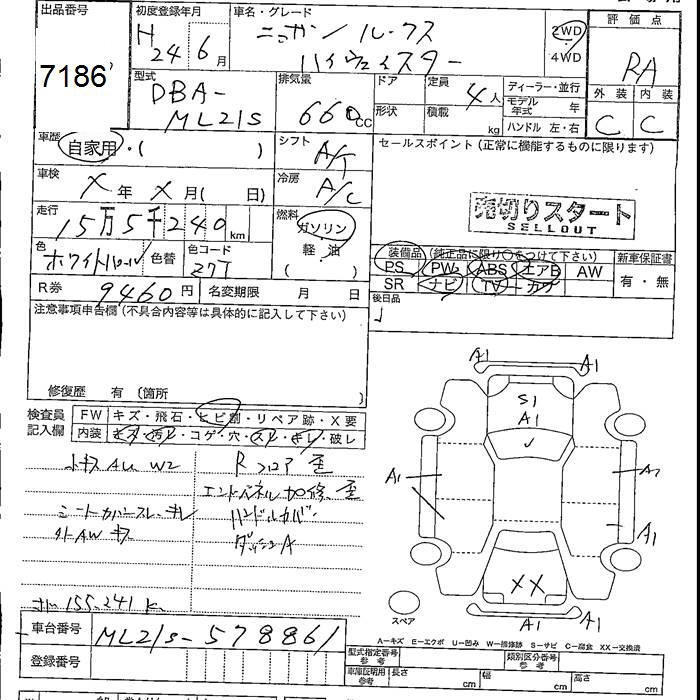 出品番号
7186
初度登録年月
H 24 6月
車名・グレード
ニッサン ルークス
ハイウェイスター
2WD
4WD
評価点
RA
外装 内装
C C
型式
DBA-
ML21S
排気量
660cc
ドア
形状
定員
4人
積載
kg
ディーラー・並行
モデル年式 年
ハンドル 左・右
車歴
自家用・( )
シフト
A/T
車検
X年 X月( 日)
冷房
A/C
走行
15万5千240km
燃料
ガソリン
軽油
( )
色
ホワイトパール
色替
色コード
Z7T
R券
9460円
名変期限 月 日
セールスポイント(正常に機能するものに限ります)
売切りスタート
SELLOUT
装備品(純正品に限り○をつけて下さい)
新車保証書
PS PW ABS エアB AW
有・無
SR ナビ TV カワ
後日品
注意事項申告欄(不具合内容等は具体的に記入して下さい)
修復歴 有〔箇所
検査員
記入欄
FW キズ・飛石・ヒビ割・リペア跡・X要
内装 キズ・汚レ・コゲ・穴・スレ・キレ・破レ
W2
Rフロア歪
エンドパネル加修、歪
シートカバースレ・キレ
ハンドルカバー
外AWキズ
ダッシュA
155-241
A1
A1
S1
A1
A1
A1
XX
A1
A1
スペア
A-キズ E-エクボ U-凹み W-補修跡 S-サビ C-腐食 XX-交換済
車台番号
ML21S-578861
登録番号
型式指定番号
参考
類別区分番号
参考
車庫証明用
参考
長さ cm 幅 cm 高さ cm